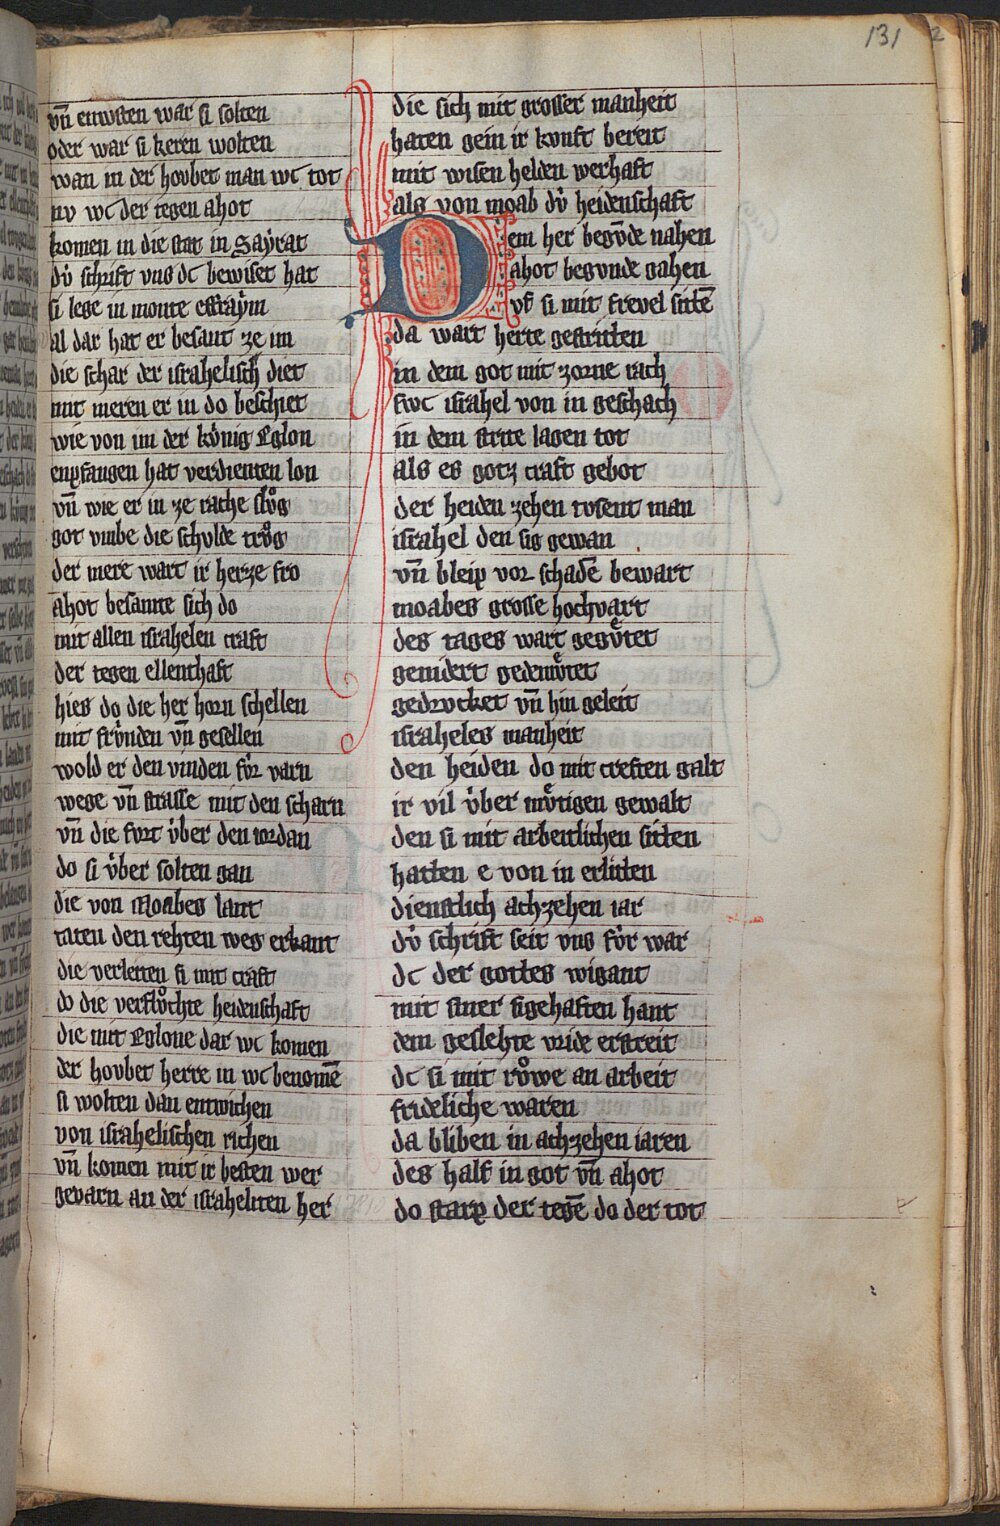 131
vn̄ entwsten war si solten
oder war si keren wolten
wan in der hovbet man wc tot
nv wc der tegen ahot
komen in die stat in Saẏrat
dv̍ schrift vns dc bewiset hat
si lege in monte effraẏm
al dar hat er besant ze im
die schar der israhelisch diet
mit meren er in do beschiet
wie von im der kv̍nig Eglon
enpfangen hat verdienten lon
vn̄ wie er in ze rache slvͦg
got vmbe die schvlde trvͦg
der mere wart ir herze fro
ahot besante sich do
mit allen israhelen craft
der tegen ellenthaft
hies do die her horn schellen
mit frv̍nden vn̄ gesellen
wold er den vinden fv̍r varn
wege vn̄ strasse mit den scharn
vn̄ die fvrt v̍ber den iordan
do si v̍ber solten gan
die von Moabes lant
taten den rehten weg erkant
die verleiten si mit craft
do die verflvͦchte heidenschaft
die mit Eglone dar wc komen
der hovbet herre in wc benomē
si wolten dan entwichen
von israhelischen richen
vn̄ komen mit ir besten wer
gevarn an der israheliten her
die sich mit grosser manheit
haten gein ir kvnft bereit
mit wisen helden werhaft
als von moab dv̍ heidenschaft
Dem her begvn̄de nahen
ahot begvnde gahen
vf si mit frevel sitē
da wart herte gestritten
in dem got mit zorne rach
swc israhel von in geschach
in dem strite lagen tot
als es gotz craft gebot
der heiden zehen tvsent man
israhel den sig gewan
vn̄ bleip vor schadē bewart
moabes grosse hochvart
des tages wart gegvͤtet
genidert gedemvͤtet
gedrvcket vn̄ hin geleit
israheles manheit
den heiden do mit creften galt
ir vil v̍ber mvͤtigen gewalt
den si mit arbeitlichen sitten
hatten e von in erlitten
dienstlich achzehen iar
dv̍ schrift seit vns fv̍r war
dc der gottes wigant
mit siner sigehaften hant
dem geslehte vride erstreit
dc si mit rvͦwe an arbeit
frideliche waren
da bliben in achzehen iaren
des half in got vn̄ ahot
do starp der tegē do der tot